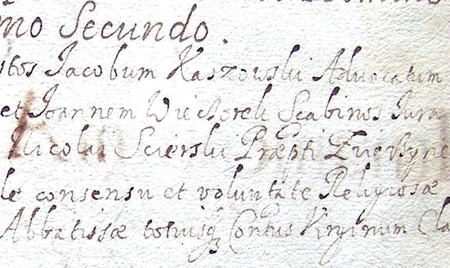 mo Secundo.
stos Jacobum Kaszowski Advocatum
et Joannem Wiechorek Scabinos Iura
Nicolai Scierski Præpti
de consensu et voluntate Religiosæ
Abbatissæ totiusq Contus Virginum Cla